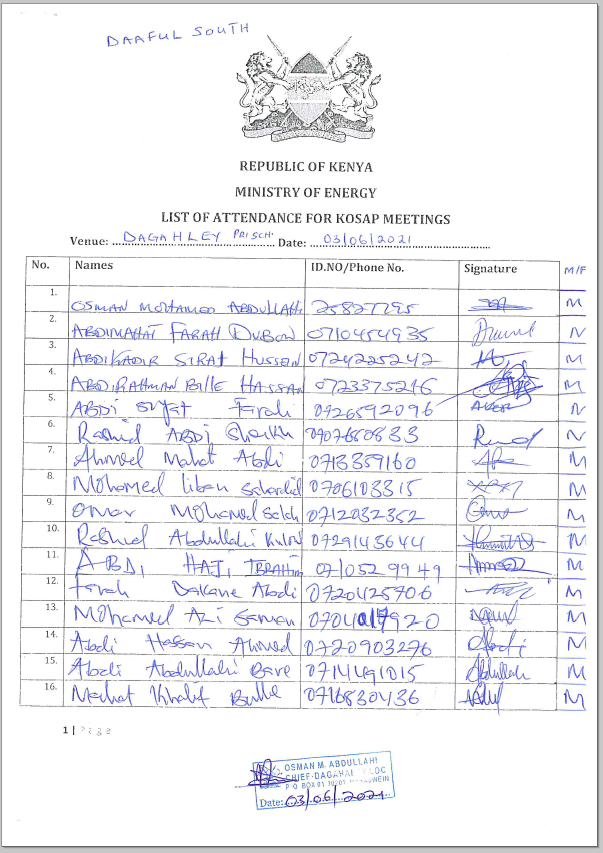 DAAFUL SOUTH
REPUBLIC OF KENYA
MINISTRY OF ENERGY
LIST OF ATTENDANCE FOR KOSAP MEETINGS
Venue: DAGAHLEY PRI SCH. Date: 03/06/2021
No. Names ID.NO/Phone No. Signature M/F
1. OSMAN MOHAMED ABDULLAHI 25827295 M
2. ABDIMAHAT FARAH DUBOW 0710454935 M
3. ABDIKADIR SIRAT HUSSEIN 0724225242 M
4. ABDIRAHMAN BILLE HASSAN 0723375216 M
5. ABDI Farah 0726592096 M
6. Rashid ABDI Sheikh 0907650833 M
7. Ahmed Mahat Abdi 0713359160 M
8. Mohamed Liban 0706103315 M
9. Omar Mohamed Salah 0712032352 M
10. Rashid Abdullahi 0729143644 M
11. ABDI HAJI IBRAHIM 0710529949 M
12. Farah Dakane Abdi 0720425706 M
13. Mohamed 0704017920 M
14. Abdi Hassan Ahmed 0720903276 M
15. Abdi Abdullahi Bare 0714491015 Abdullah M
16. Mahat Khalif Bulle 0716830436 M
1 | Page
OSMAN M. ABDULLAHI
CHIEF-DAGAHALEY LOC
P O BOX 01 70201
Date: 03/06/2021